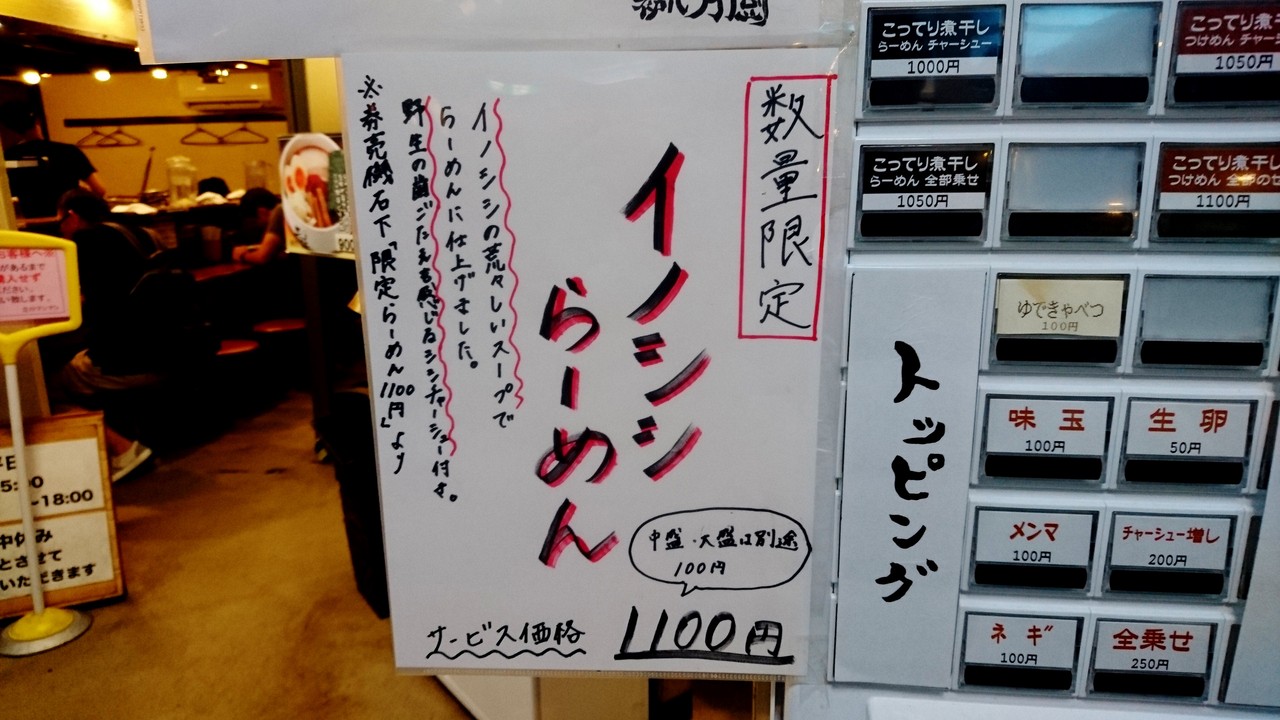 数量限定
イノシシ
らーめん
イノシシの荒々しいスープで
らーめんに仕上げました。
野生の歯ごたえを感じるシシチャーシュー付き。
※券売機右下「限定らーめん1100円」より
中盛・大盛は別途
100円
サービス価格
1100円
こってり煮干し
らーめん チャーシュー
1000円
こってり煮干し
1050円
こってり煮干し
らーめん 全部乗せ
1050円
こってり煮干し
1100円
トッピング
ゆできゃべつ
100円
味玉
100円
生卵
50円
メンマ
100円
チャーシュー増し
200円
ネギ
100円
全乗せ
250円
5:00
~18:00
いただきます